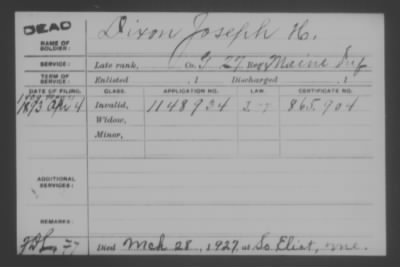 DEAD
NAME OF SOLDIER: Dixon Joseph H.
SERVICE: Late rank, Co. G, 27 Reg. Maine Inf
TERM OF SERVICE: Enlisted , 1 Discharged , 1
DATE OF FILING. CLASS. APPLICATION NO. LAW. CERTIFICATE NO.
1893 Apr 4 Invalid, 1148934 865.904
Widow,
Minor,
ADDITIONAL SERVICES:
REMARKS:
Died Mch 28, 1927, at So. Eliot, Me.